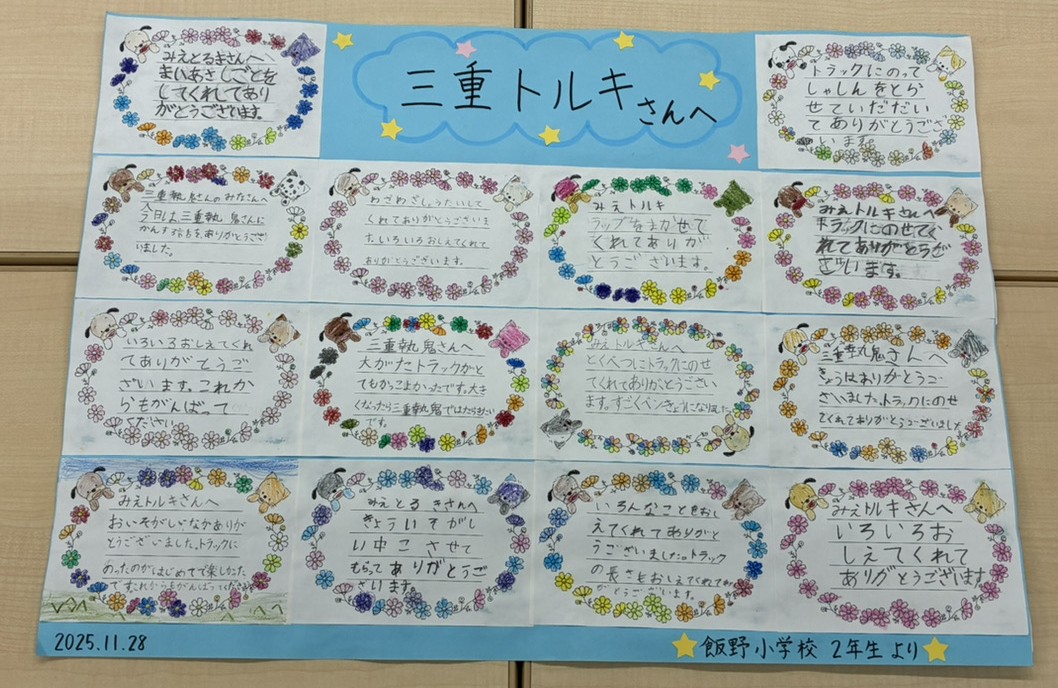 みえとるきさんへ
まいあさしごとを
してくれてあり
がとうございます。
三重トルキさんへ
トラックにのって
しゃしんをとら
せていただだい
てありがとうござ
います。
三重執鬼さんのみなさんへ
今日は三重執鬼さんに
ありがとうござ
いました。
わざわざしょうたいして
くれてありがとうございま
す。いろいろおしえてくれて
ありがとうございます。
みえトルキ
ラップをまかせて
くれてありが
とうございます。
みえトルキさんへ
トラックにのせてく
れてありがとうご
ざいます。
いろいろおしえてくれ
てありがとうご
ざいます。これか
らもがんばって
ください
三重執鬼さんへ
大がたトラックがと
てもかっこよかったです。大き
くなったら三重執鬼ではたらきたい
です。
みえトルキさんへ
とくべつにトラックにのせ
てくれてありがとうござい
ます。すごくベンきょうになりました
三重執鬼さんへ
きょうはありがとうご
ざいました。トラックにのせ
てくれてありがとうございました
みえトルキさんへ
おいそがしいなかありが
とうございました。トラックに
のったのがはじめてで楽しかった
です。これからもがんばってください
みえとるきさんへ
きょういそがし
い中こさせて
もらってありがとうご
ざいます。
いろんなことをおし
えてくれてありがと
うございました。トラック
の長さもおしえてくれてあり
がとうございます。
みえトルキさんへ
いろいろお
しえてくれて
ありがとうございます
2025.11.28
飯野小学校 2年生より